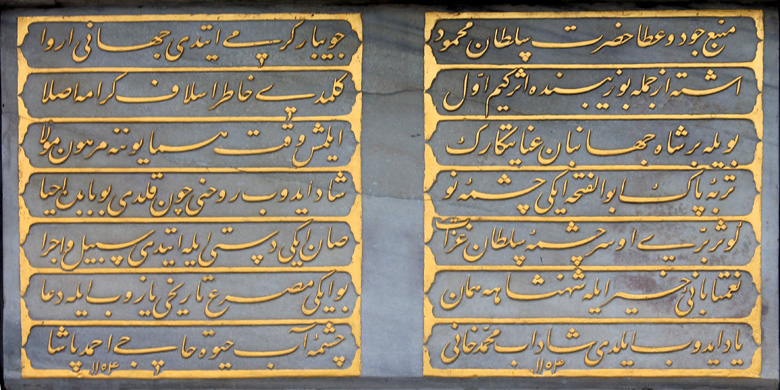 منبع جود و عطا حضرت سلطان محمود جویبار کرمی ایتدی جهانی اروا
اشته از جمله بو زیبنده اثر کیم اول کلمدی خاطر اسلاف کرامه اصلا
بویله بر شاه جهانبان عنایتکارک ایلمش وقت همایوننه مرهون مولا
تربهٔ پاک ابو الفتحه ایکی چشمهٔ نو شاد ایدوب روحنی چون قلدی بو بابده احیا
کوثر بری او سرچشمهٔ سلطان غزات صان ایکی دستی ایله ایتدی سبیل و اجرا
نعمتا بانی خیر ایله شهنشاهه همان بو ایکی مصرع تاریخی یازوب ایله دعا
یاد ایدوب ایلدی شاداب محمد خانی ١١٥٤ چشمهٔ آب حیوة حاجی احمد پاشا ١١٥٤